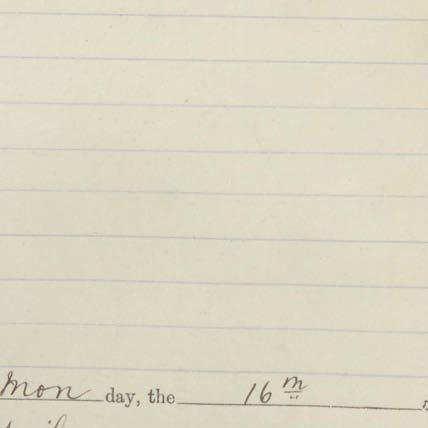 Mon day, the 16th